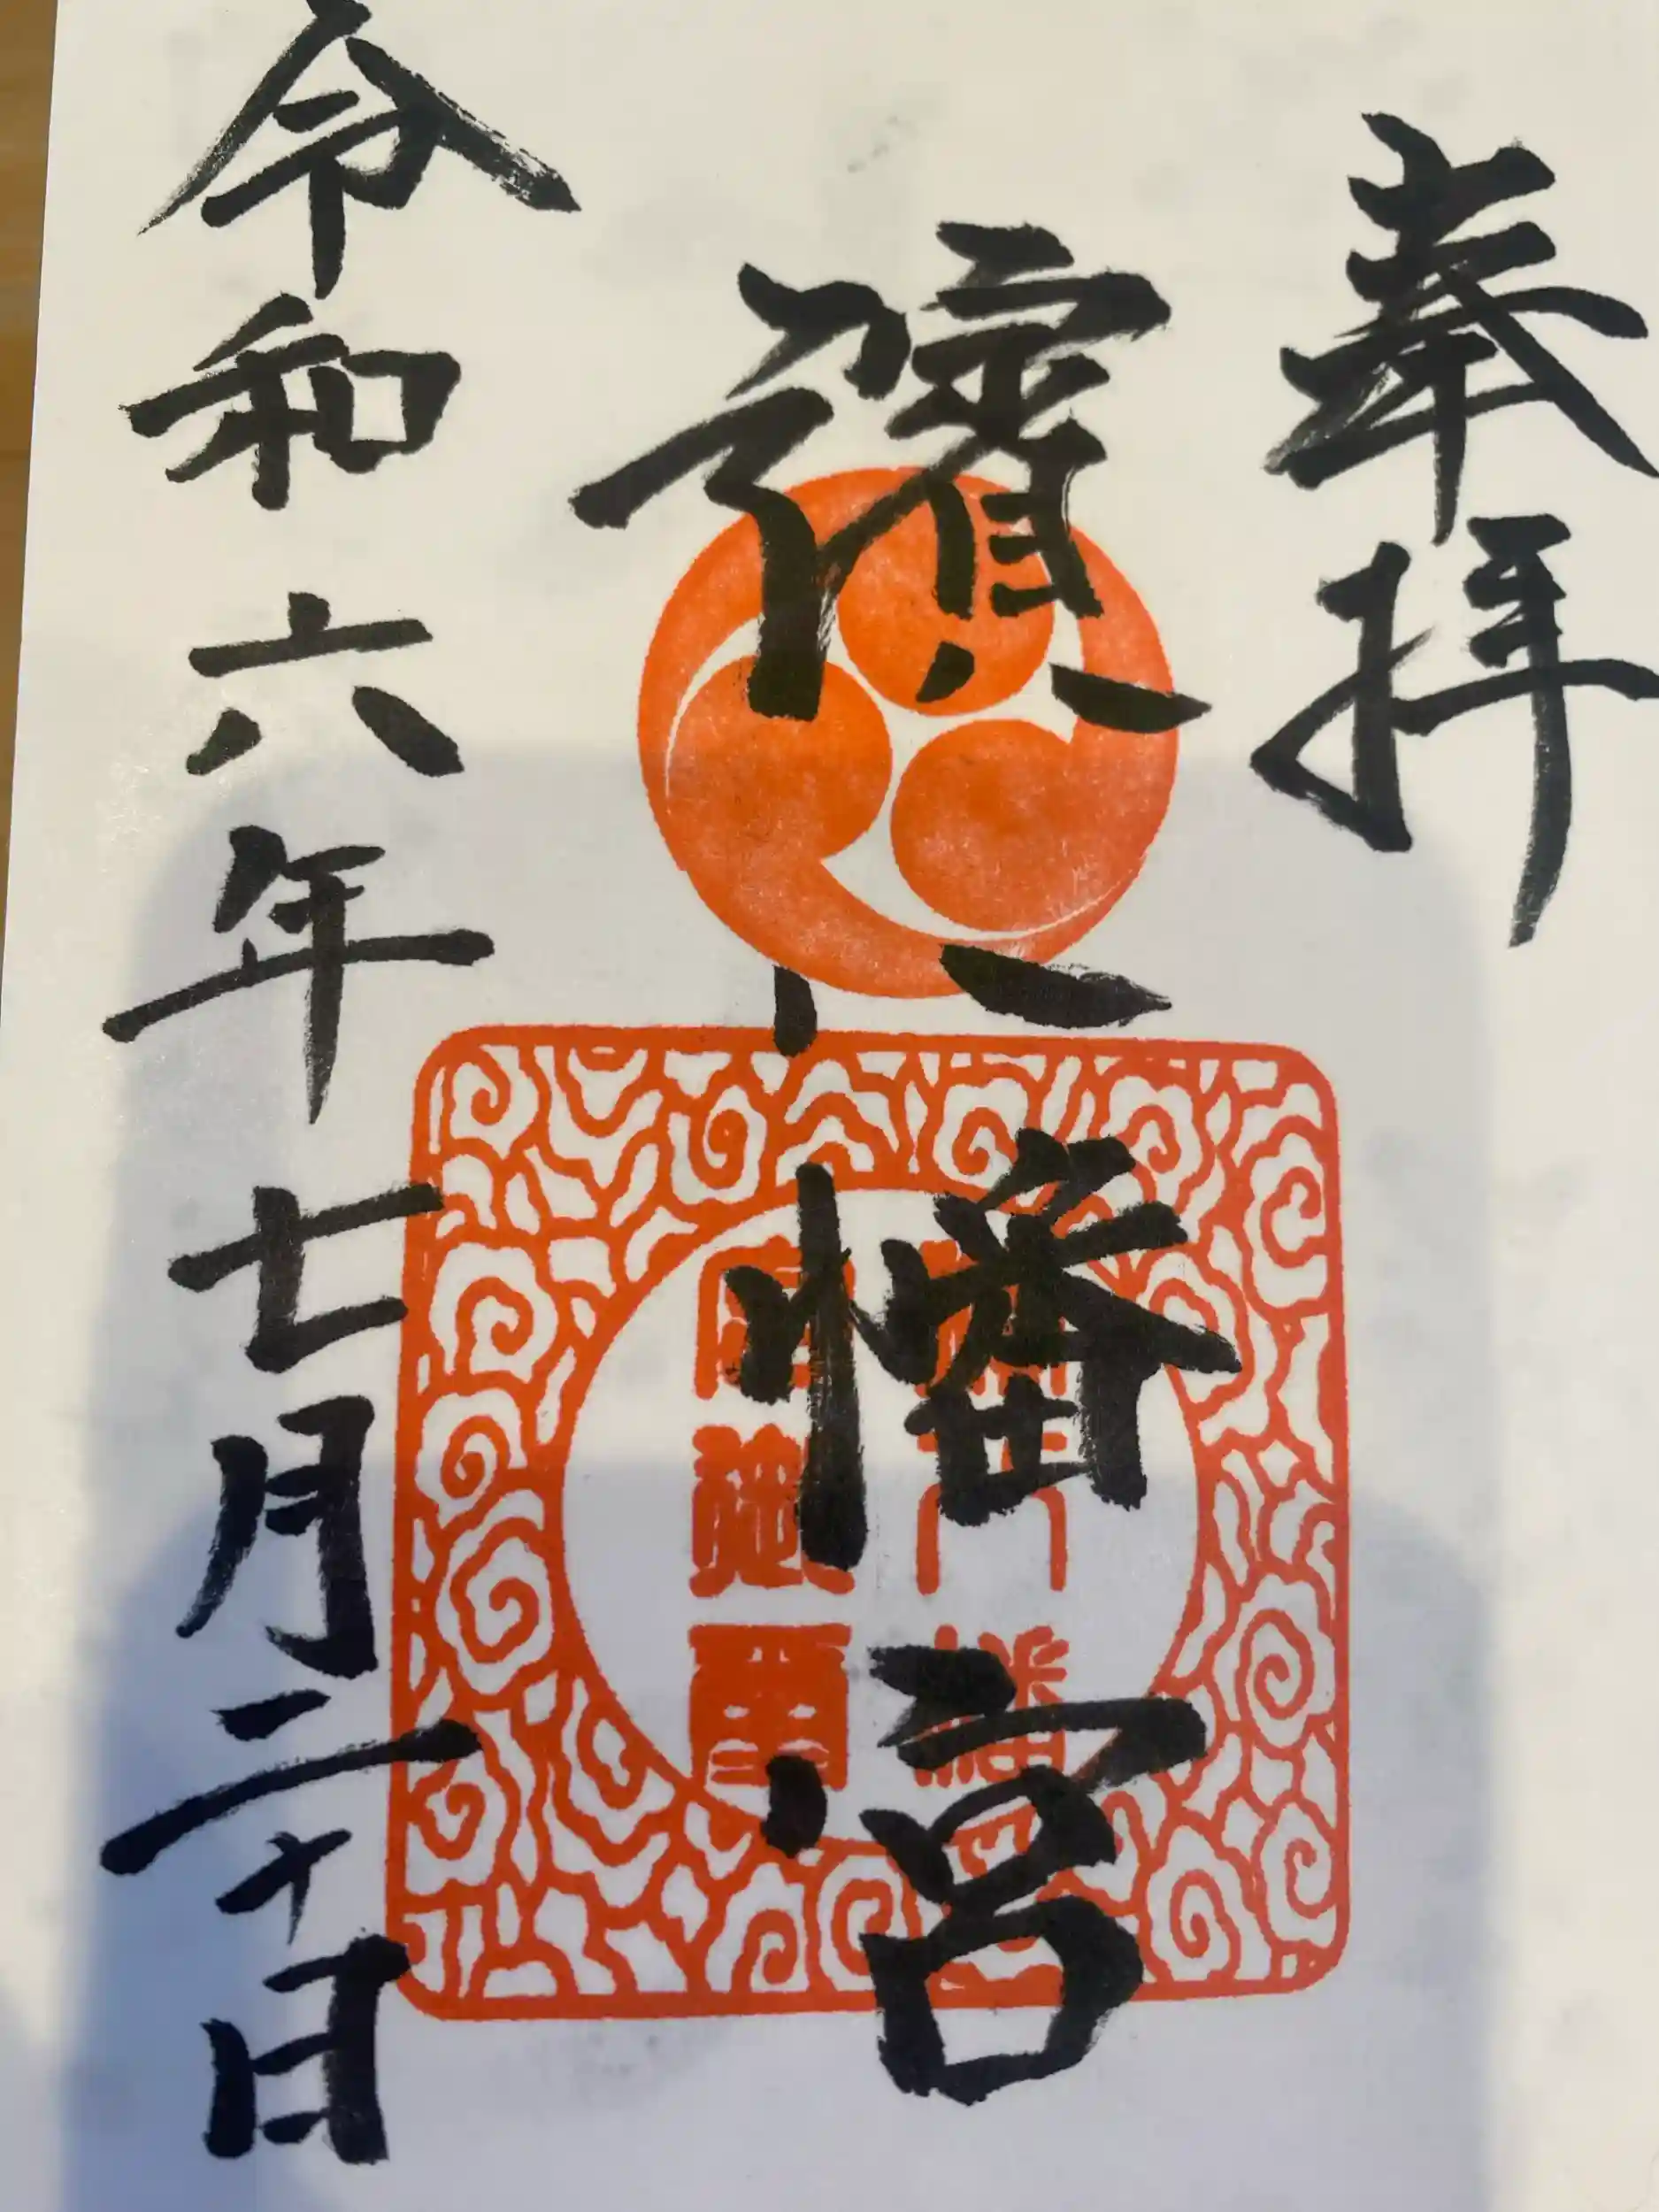 奉拝
八幡宮
令和六年七月二十日